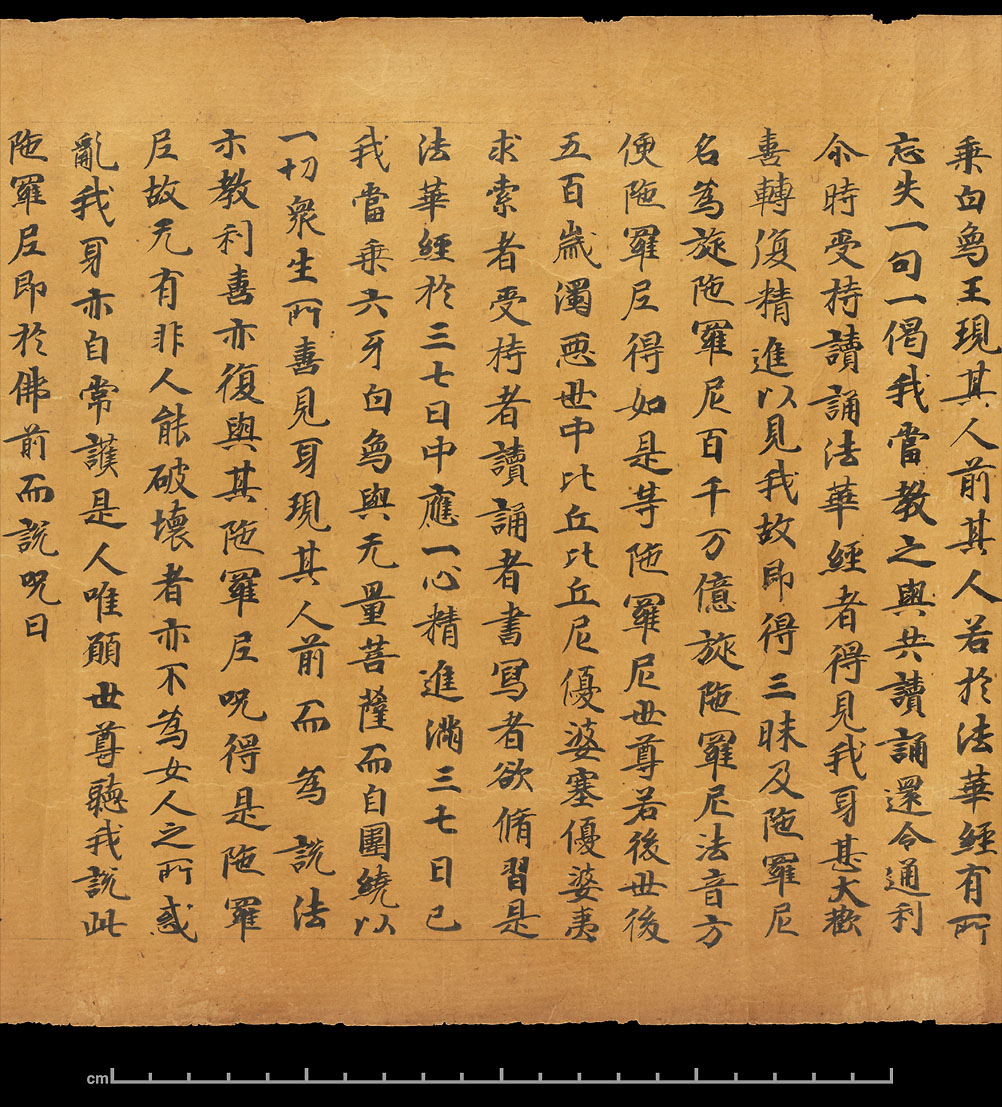 乘白鳥王現其人前其人若於法華經有所
忘失一句一偈我當教之與共讀誦還令通利
尒時受持讀誦法華經者得見我身甚大歡
喜轉復精進以見我故即得三昧及陁羅尼
名為旋陁羅尼百千万億旋陁羅尼法音方
便陁羅尼得如是等陁羅尼世尊若後世後
五百歲濁惡世中比丘比丘尼優婆塞優婆夷
求索者受持者讀誦者書寫者欲脩習是
法華經於三七日中應一心精進滿三七日已
我當乘六牙白鳥與无量菩薩而自圍繞以
一切衆生所喜見身現其人前而為說法
示教利喜亦復與其陁羅尼呪得是陁羅
尼故无有非人能破壞者亦不為女人之所惑
亂我身亦自常護是人唯願世尊聽我說此
陁羅尼即於佛前而說呪曰
cm